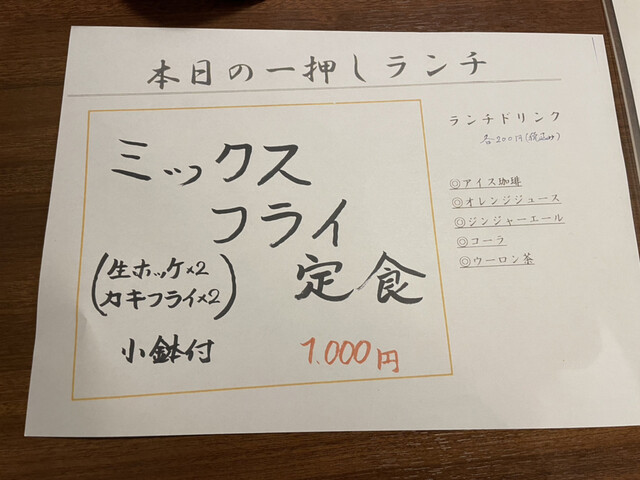 本日の一押しランチ
ミックス
フライ
定食
(生ホッケ×2
カキフライ×2)
小鉢付
1,000円
ランチドリンク
各200円(税込み)
◎アイス珈琲
◎オレンジジュース
◎ジンジャーエール
◎コーラ
◎ウーロン茶